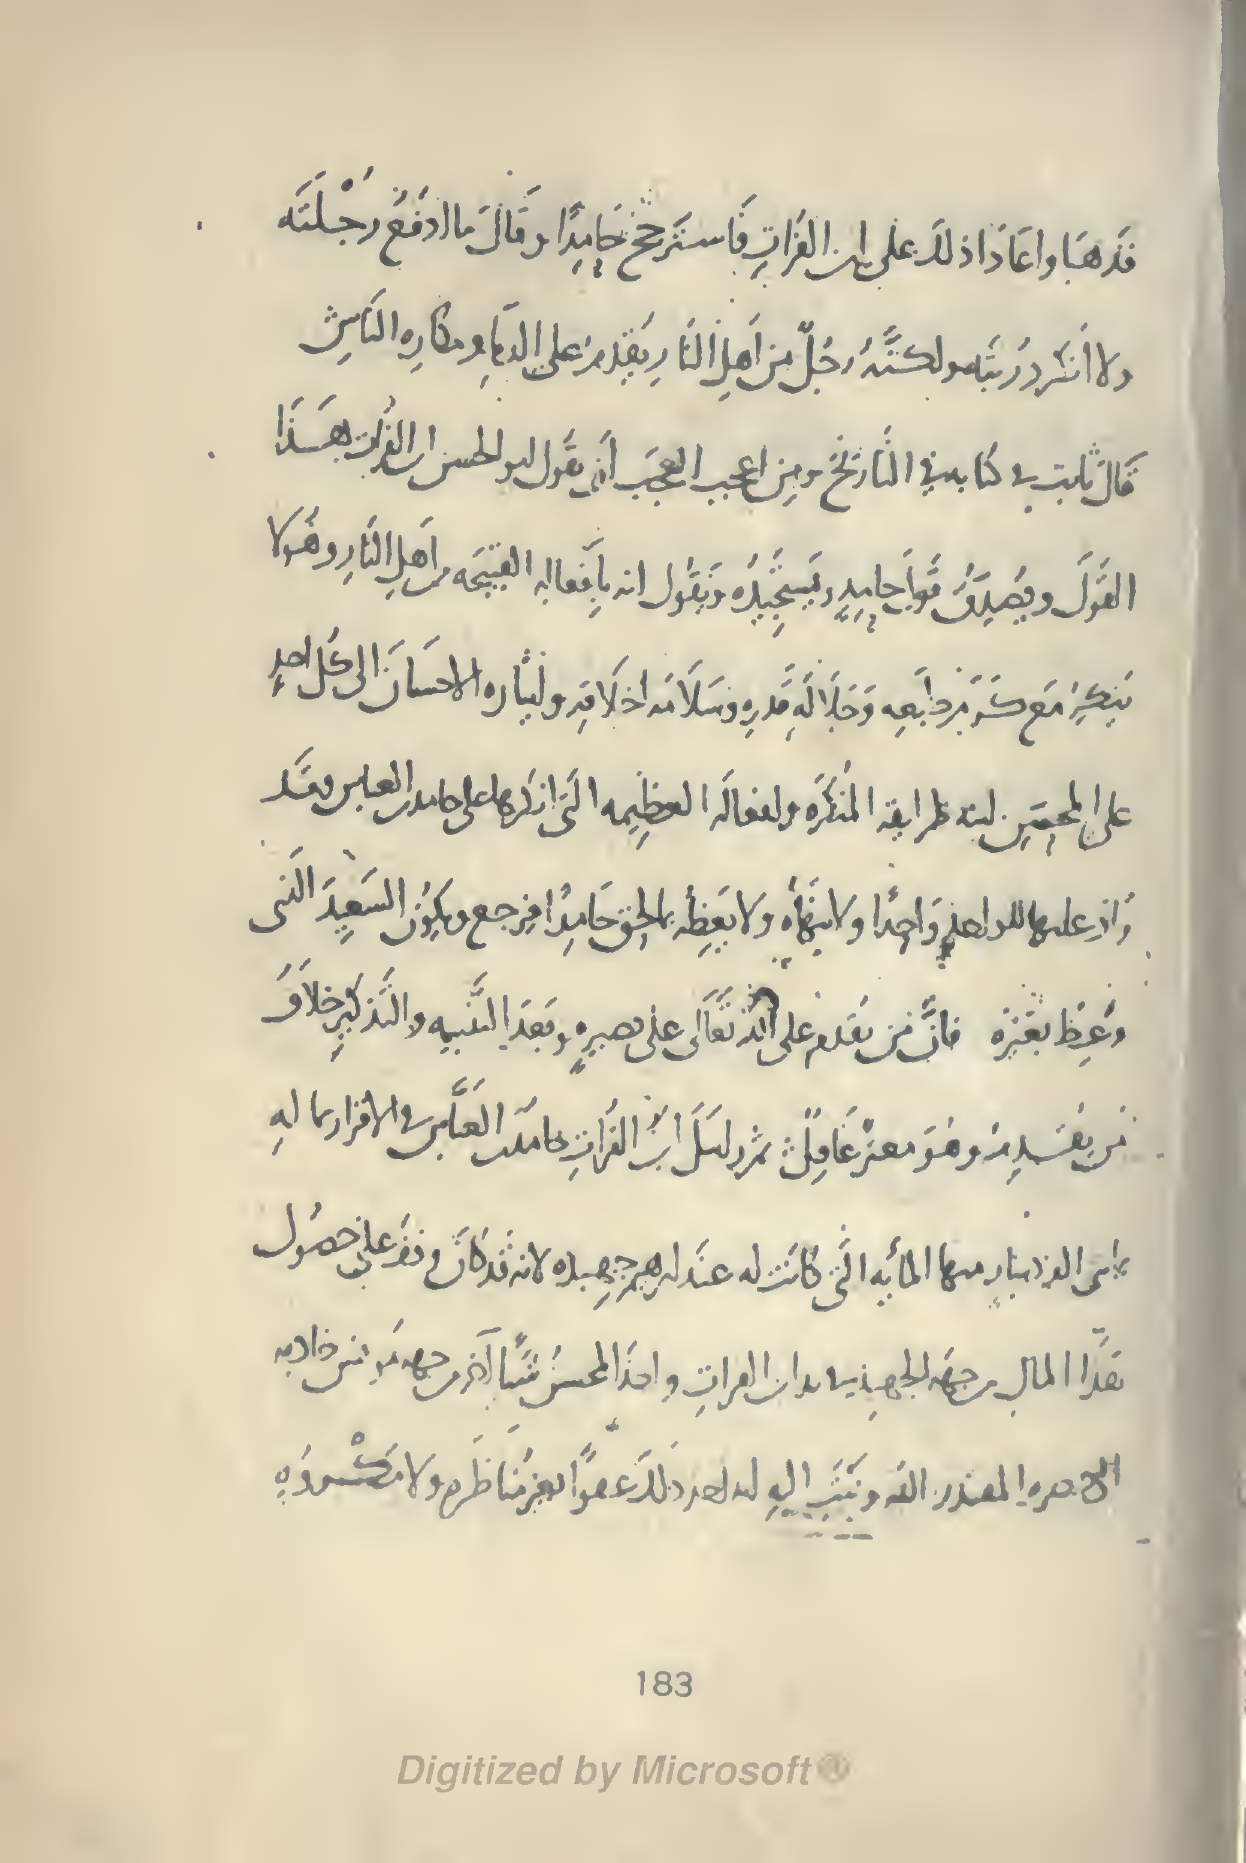 فَذهبَا واعَادَا ذلك على ابن الفُراتِ فَاسترجح حَامِدًا وقَالَ ما ادفَعُ رُجْلَتَه
ولا اُنكر دُرْبتَه ولكنَّهُ رجُلٌ من اَهلِ النَارِ يُقدِمُ على الدِمَاءِ ومكارِه النَاسِ
قالَ ثابت في كتابه في التَاريخ ومِن اعجب العجَب أن يقُول ابو الحسن ابن الفُرات بهَذا
القَولَ ويصدِقُ قَول حامدٍ ويَستجيدُه ويقُول انه بِأَفعاله القبيحَه من اَهلِ النَارِ وهُو لا
يُنكِرُ مَع كرَم طَبعِه وَجَلالَةِ قَدرِه وسَلامَه اخلاقِه وايثاره الاحسَان الى كُل احدٍ
على المحسِّن ابنه طرايقه المُنكَرَه وافعالَه العظِيمه الَتى انكرها على حامد بن العباس وقَد
وَاحِدًا ولا ينهَاه ولا يَعِظه بما لحِق حَامِدًا فيرجع ويكُون السَعِيدَ الَذى
وُعِظ بغَيْرِه فانَّ مَن يقدم على اللَّه تَعَالَى على بصيرهٍ وبَعدَ التَنبيه والتَذكيرِ خلافُ
مَن يُقدِمُ وهُوَ مغترٌ غَافِلٌ ثم راسَلَ ابنُ الفُراتِ حامد بن العَبَّاس في الاقرار بما لهِ
مايتى الف دينار منها المايَه الَتى كانَت له عند ابرهيم جهبذه لانه قَد كانَ وقفَ على حصُول
هَذا المال من جهَه الجهبذ في يد ابن الفراتِ واخذ المحسنُ شَيئًا آخَر من جهه مُونس خادمه
المقتدر باللَّه ونَسَبَ اليهِ انه اخذ ذلك عَفوًا بغيرِ مُنَاظَرهٍ ولا مَكْرُوهٍ
183
Digitized by Microsoft®